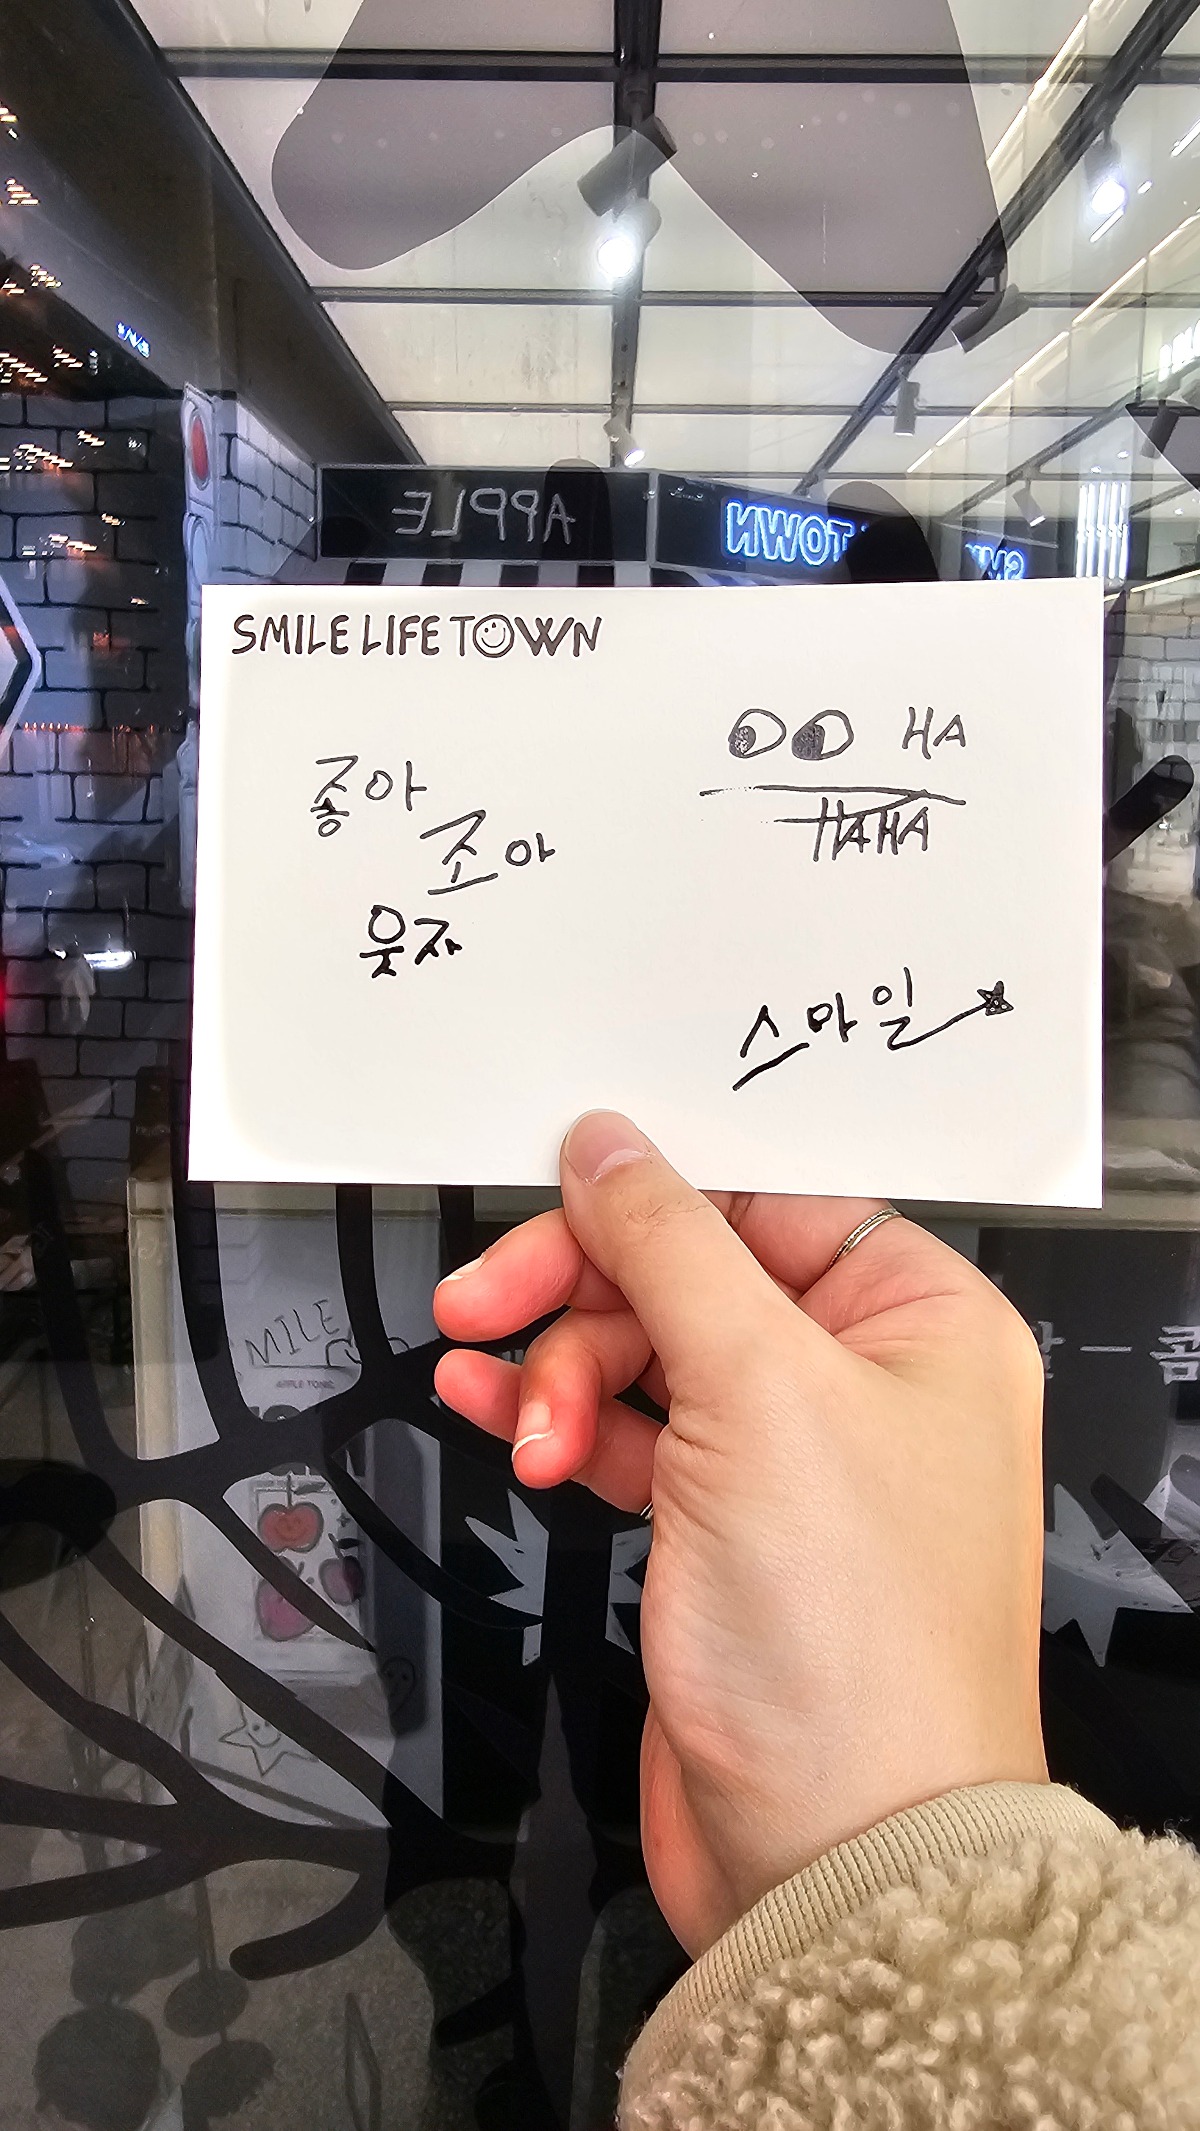 APPLE
TOWN
SMILE LIFE TOWN
좋아
조아
웃자
HA
HAHA
스마일
MILE
APPLE TONIC